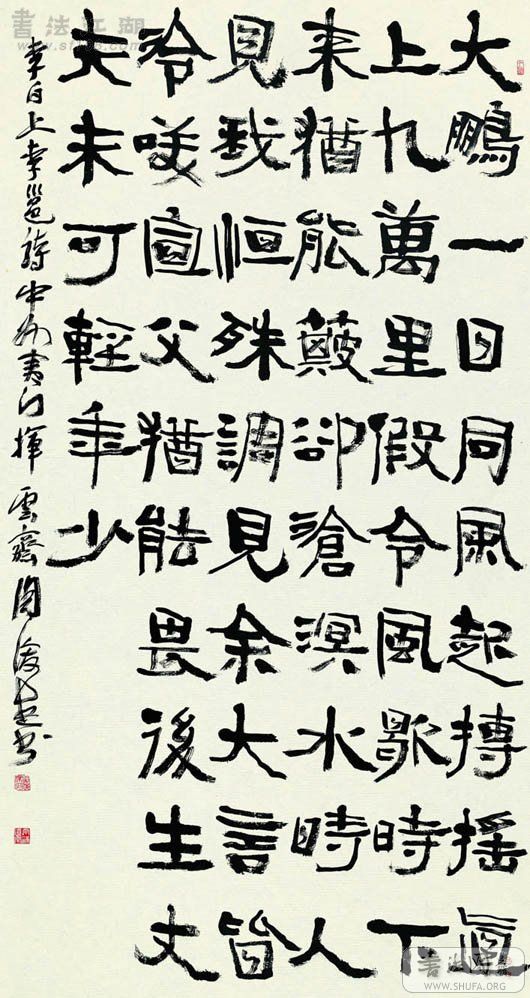 大鵬一日同風起摶搖直
上九萬里假令風歇時下
来猶能簸卻滄溟水時人
見我恒殊調見余大言皆
冷咲宣父猶能畏後生丈
夫未可輕年少
李白上李邕詩中州夷门揮雲齋周俊杰书
書法江湖
書法江湖
WWW.SHUFA.ORG